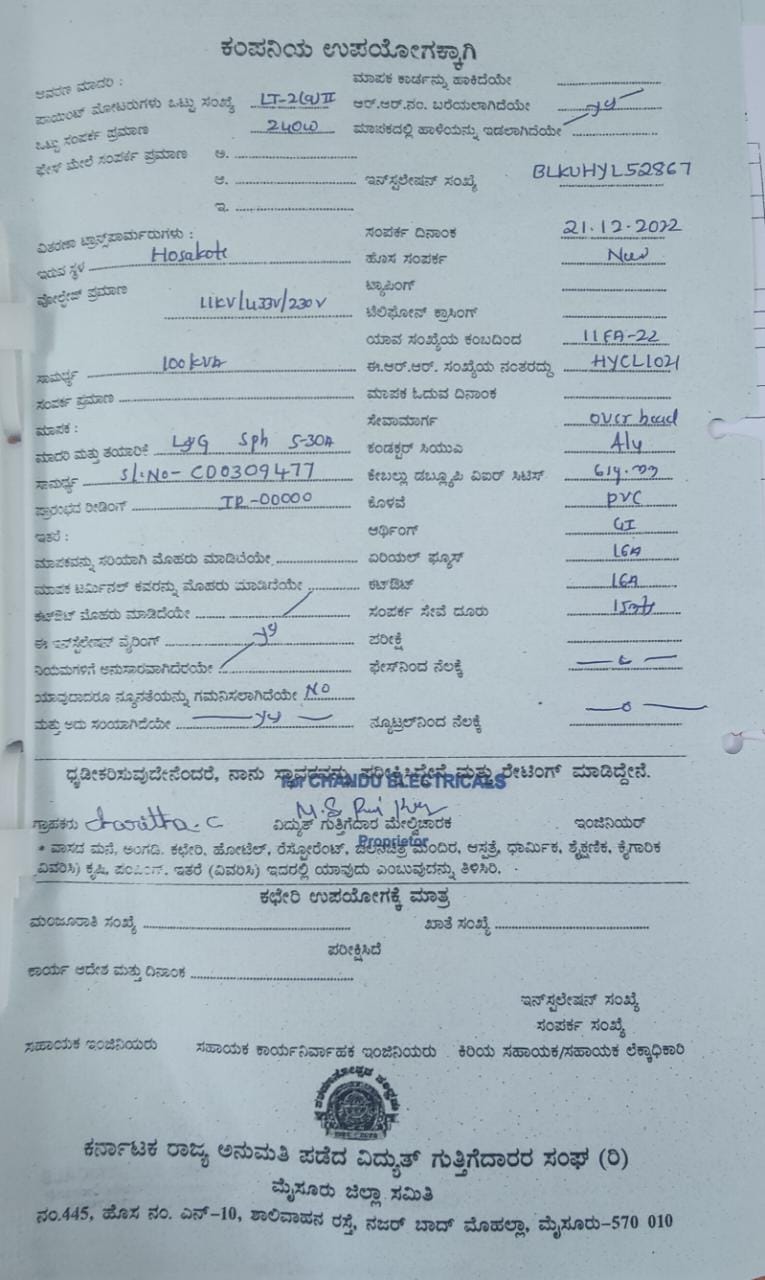 ಕಂಪನಿಯ ಉಪಯೋಗಕ್ಕಾಗಿ
ಆವರಣ ಮಾದರಿ : ಮಾಪಕ ಕಾರ್ಡನ್ನು ಹಾಕಿದೆಯೇ
ಪಾಯಿಂಟ್ ಮೋಟರುಗಳು ಒಟ್ಟು ಸಂಖ್ಯೆ LT-2(a)II ಆರ್.ಆರ್.ನಂ. ಬರೆಯಲಾಗಿದೆಯೇ
ಒಟ್ಟು ಸಂಪರ್ಕ ಪ್ರಮಾಣ 240W ಮಾಪಕದಲ್ಲಿ ಹಾಳೆಯನ್ನು ಇಡಲಾಗಿದೆಯೇ
ಫೇಸ್ ಮೇಲೆ ಸಂಪರ್ಕ ಪ್ರಮಾಣ ಅ.
ಆ. ಇನ್‌ಸ್ಟಲೇಷನ್ ಸಂಖ್ಯೆ BLKUHYL52867
ಇ.
ವಿತರಣಾ ಟ್ರಾನ್ಸ್‌ಪಾರ್ಮರುಗಳು : ಸಂಪರ್ಕ ದಿನಾಂಕ 21.12.2022
ಇರುವ ಸ್ಥಳ Hosakote ಹೊಸ ಸಂಪರ್ಕ New
ವೋಲ್ಟೇಜ್ ಪ್ರಮಾಣ 11KV/433V/230V ಟ್ಯಾಪಿಂಗ್
ಟೆಲಿಫೋನ್ ಕ್ರಾಸಿಂಗ್
ಯಾವ ಸಂಖ್ಯೆಯ ಕಂಬದಿಂದ 11FA-22
ಸಾಮರ್ಥ್ಯ 100KVA ಈ.ಆರ್.ಆರ್. ಸಂಖ್ಯೆಯ ನಂತರದ್ದು HYCL1021
ಸಂಪರ್ಕ ಪ್ರಮಾಣ ಮಾಪಕ ಓದುವ ದಿನಾಂಕ
ಮಾಪಕ : ಸೇವಾಮಾರ್ಗ over head
ಮಾದರಿ ಮತ್ತು ತಯಾರಿಕೆ L&G Sph 5-30A ಕಂಡಕ್ಟರ್ ಸಿಯುಎ Aly
ಸಾಮರ್ಥ್ಯ Sl.No- CD0309477 ಕೇಬಲ್ಲು ಡಬ್ಲ್ಯೂಪಿ ವಿಐರ್ ಸಿಟಿಸ್
ಪ್ರಾರಂಭದ ರೀಡಿಂಗ್ IR-00000 ಕೊಳವೆ PVC
ಇತರೆ : ಆರ್ಥಿಂಗ್ GI
ಮಾಪಕವನ್ನು ಸರಿಯಾಗಿ ಮೊಹರು ಮಾಡಿದೆಯೇ ಏರಿಯಲ್ ಫ್ಯೂಸ್ 16A
ಮಾಪಕ ಟರ್ಮಿನಲ್ ಕವರನ್ನು ಮೊಹರು ಮಾಡಿದೆಯೇ ಕಟ್‌ಔಟ್ 16A
ಕಟ್‌ಔಟ್ ಮೊಹರು ಮಾಡಿದೆಯೇ ಸಂಪರ್ಕ ಸೇವೆ ದೂರು
ಈ ಇನ್‌ಸ್ಟಲೇಷನ್ ವೈರಿಂಗ್ ಪರೀಕ್ಷೆ
ನಿಯಮಗಳಿಗೆ ಅನುಸಾರವಾಗಿದೆರೆಯೇ ಫೇಸ್‌ನಿಂದ ನೆಲಕ್ಕೆ
ಯಾವುದಾದರೂ ನ್ಯೂನತೆಯನ್ನು ಗಮನಿಸಲಾಗಿದೆಯೇ NO
ಮತ್ತು ಅದು ಸಂಯಾಗಿದೆಯೇ ನ್ಯೂಟ್ರಲ್‌ನಿಂದ ನೆಲಕ್ಕೆ
ಧೃಡೀಕರಿಸುವುದೇನೆಂದರೆ, ನಾನು ಸ್ಥಾವರವನ್ನು ಪರೀಕ್ಷಿಸಿದ್ದೇನೆ ಮತ್ತು ರೇಟಿಂಗ್ ಮಾಡಿದ್ದೇನೆ.
For CHANDU ELECTRICALS
ಗ್ರಾಹಕರು ವಿದ್ಯುತ್ ಗುತ್ತಿಗೆದಾರ ಮೇಲ್ವಿಚಾರಕ ಇಂಜಿನಿಯರ್
Proprietor
* ವಾಸದ ಮನೆ, ಅಂಗಡಿ. ಕಛೇರಿ, ಹೋಟೆಲ್, ರೆಸ್ಟೋರೆಂಟ್, ಚಲನಚಿತ್ರ ಮಂದಿರ, ಆಸ್ಪತ್ರೆ, ಧಾರ್ಮಿಕ, ಶೈಕ್ಷಣಿಕ, ಕೈಗಾರಿಕ
ವಿವರಿಸಿ) ಕೃಷಿ, ಪಂಪಿಂಗ್, ಇತರೆ (ವಿವರಿಸಿ) ಇದರಲ್ಲಿ ಯಾವುದು ಎಂಬುವುದನ್ನು ತಿಳಿಸಿರಿ.
ಕಛೇರಿ ಉಪಯೋಗಕ್ಕೆ ಮಾತ್ರ
ಮಂಜೂರಾತಿ ಸಂಖ್ಯೆ ಖಾತೆ ಸಂಖ್ಯೆ
ಪರೀಕ್ಷಿಸಿದೆ
ಕಾರ್ಯ ಆದೇಶ ಮತ್ತು ದಿನಾಂಕ
ಇನ್‌ಸ್ಪಲೇಷನ್ ಸಂಖ್ಯೆ
ಸಂಪರ್ಕ ಸಂಖ್ಯೆ
ಸಹಾಯಕ ಇಂಜಿನಿಯರು ಸಹಾಯಕ ಕಾರ್ಯನಿರ್ವಾಹಕ ಇಂಜಿನಿಯರು ಕಿರಿಯ ಸಹಾಯಕ/ಸಹಾಯಕ ಲೆಕ್ಕಾಧಿಕಾರಿ
ಕರ್ನಾಟಕ ರಾಜ್ಯ ಅನುಮತಿ ಪಡೆದ ವಿದ್ಯುತ್ ಗುತ್ತಿಗೆದಾರರ ಸಂಘ (ರಿ)
ಮೈಸೂರು ಜಿಲ್ಲಾ ಸಮಿತಿ
ನಂ.445, ಹೊಸ ನಂ. ಎನ್-10, ಶಾಲಿವಾಹನ ರಸ್ತೆ, ನಜರ್ ಬಾದ್ ಮೊಹಲ್ಲಾ, ಮೈಸೂರು-570 010